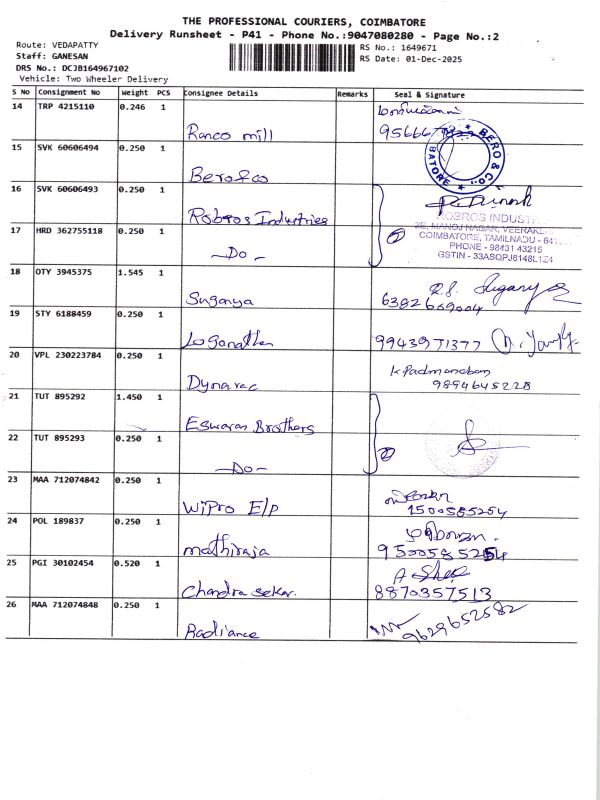 THE PROFESSIONAL COURIERS, COIMBATORE
Delivery Runsheet - P41 - Phone No.:9047080280 - Page No.:2
Route: VEDAPATTY
Staff: GANESAN
DRS No.: DCJB164967102
Vehicle: Two Wheeler Delivery
RS No.: 1649671
RS Date: 01-Dec-2025
S No Consignment No Weight PCS Consignee Details Remarks Seal & Signature
14 TRP 4215110 0.246 1
Ranco mill
95666
15 SVK 60606494 0.250 1
Bero&co
BERO & CO.,
BATORE
16 SVK 60606493 0.250 1
Robros Industries
ROBROS INDUST
2E, MANOJ NAGAR, VEERAKE
COIMBATORE, TAMILNADU - 641
PHONE - 98431 43215
GSTIN - 33ASQPJ8148L1Z4
17 HRD 362755118 0.250 1
-Do-
2
18 OTY 3945375 1.545 1
Suganya
R.S. Suganya
6382669004
19 STY 6188459 0.250 1
Loganathan
9943971377
20 VPL 230223784 0.250 1
Dynavac
K Padmanaban
9894645228
21 TUT 895292 1.450 1
Eswaran Brothers
22 TUT 895293 0.250 1
-Do-
2
23 MAA 712074842 0.250 1
Wipro E/p
1500585254
24 POL 189837 0.250 1
mathiraja
9500585254
25 PGI 30102454 0.520 1
Chandra sekar.
8870357513
26 MAA 712074848 0.250 1
Radiance
9629652582